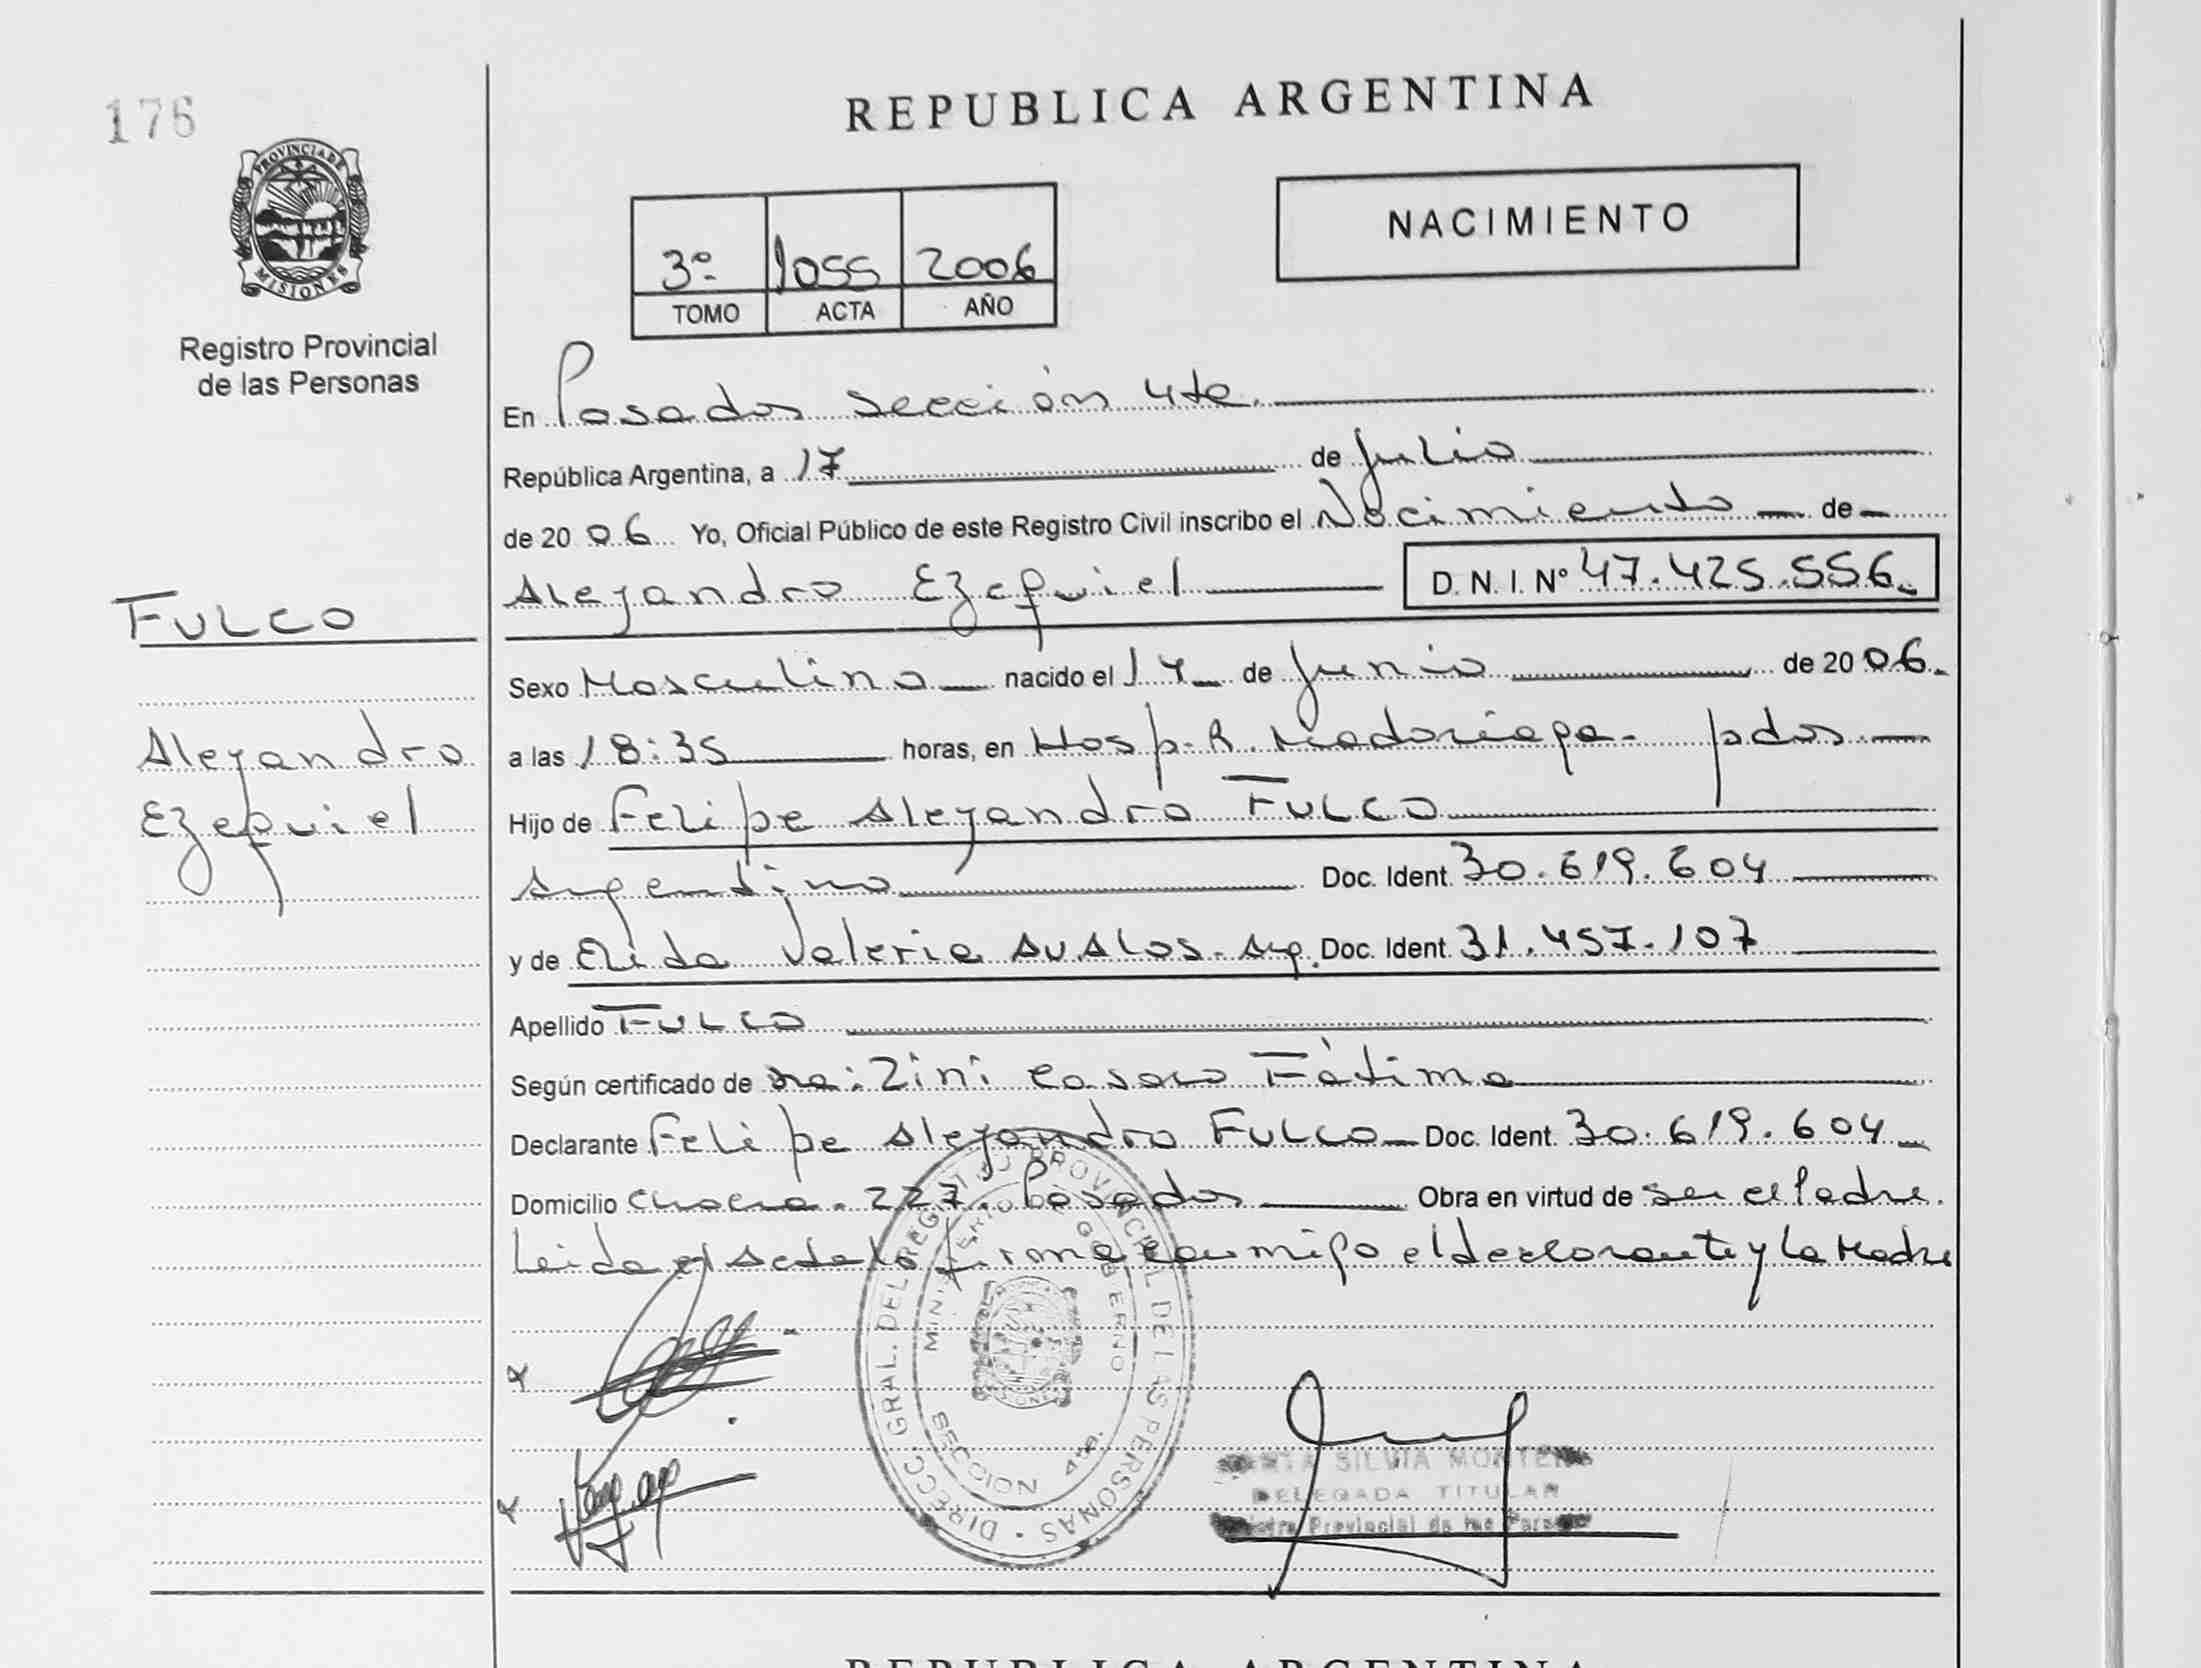 176
REPUBLICA ARGENTINA
PROVINCIA DE
MISIONES
Registro Provincial
de las Personas
NACIMIENTO
3º 1055 2006
TOMO ACTA AÑO
En Posadas sección 4ta.
República Argentina, a 17 de Julio
de 2006 Yo, Oficial Público de este Registro Civil inscribo el Nacimiento de
Alejandro Ezequiel D. N. I. Nº 47.425.556
FULCO
Sexo Masculino nacido el 14 de Junio de 2006.
Alejandro
a las 18:35 horas, en Hosp. R. Madariaga - pdas
Ezequiel
Hijo de Felipe Alejandro FULCO
Argentino Doc. Ident. 30.619.604
y de Elida Valeria AVALOS. Arg. Doc. Ident. 31.457.107
Apellido FULCO
Según certificado de Zini Fátima
Declarante Felipe Alejandro FULCO Doc. Ident. 30.619.604
Domicilio Chacra. 227. Posadas Obra en virtud de ser el Padre.
Leida el Acta la firma conmigo el declarante y la Madre
DIRECC. GRAL. DEL REGISTRO PROVINCIAL DE LAS PERSONAS
MINISTERIO DE GOBIERNO
SECCION 4ta.
SILVIA
DELEGADA TITULAR
Provincial de las
REPUBLICA ARGENTINA